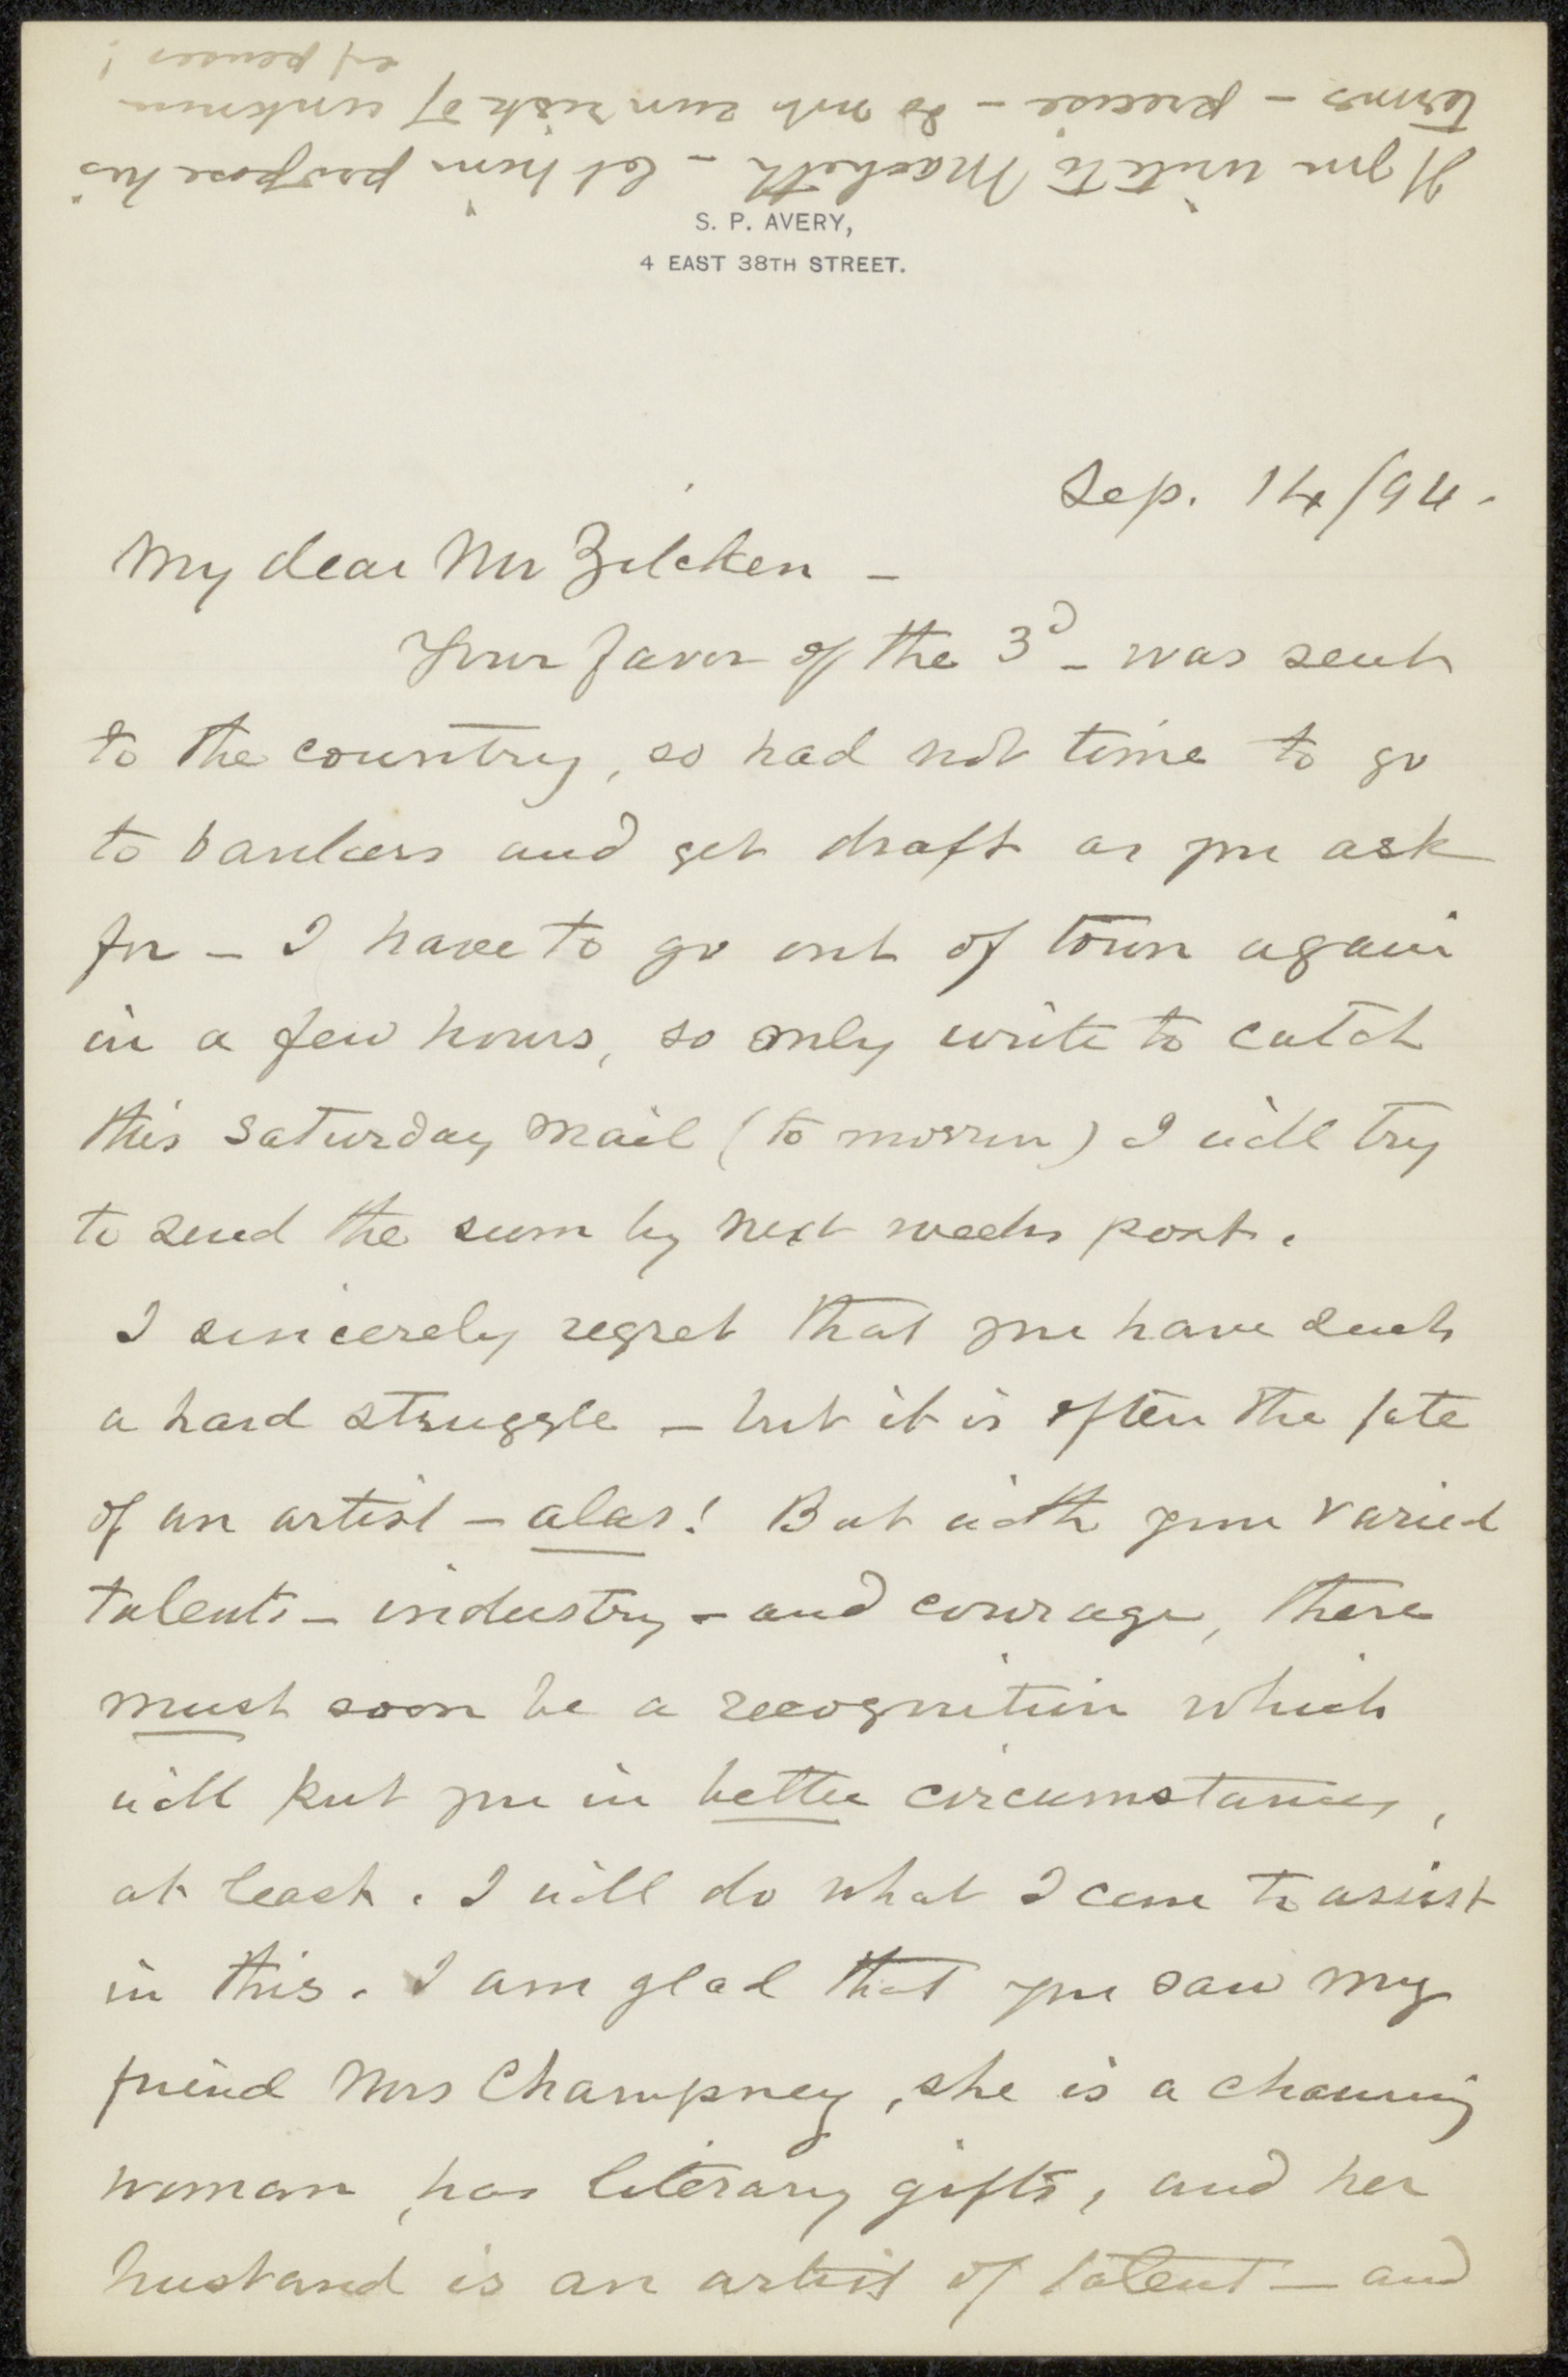 If you write to Macbeth - let him propose his
terms - precise - do not run risk of unknown
expenses!
S. P. AVERY,
4 EAST 38TH STREET.
Sep. 14/94.
My dear Mr Zilcken -
Your favor of the 3d - was sent
to the country, so had not time to go
to bankers and get draft as you ask
for - I have to go out of town again
in a few hours, so only write to catch
this Saturday mail (to morrow) I will try
to send the sum by next weeks post.
I sincerely regret that you have such
a hard struggle - but it is often the fate
of an artist - alas! But with your varied
talents - industry - and courage, there
must soon be a recognition which
will put you in better circumstances,
at least. I will do what I can to assist
in this. I am glad that you saw my
friend Mrs Champney, she is a charming
woman, has literary gifts, and her
husband is an artist of talent - and